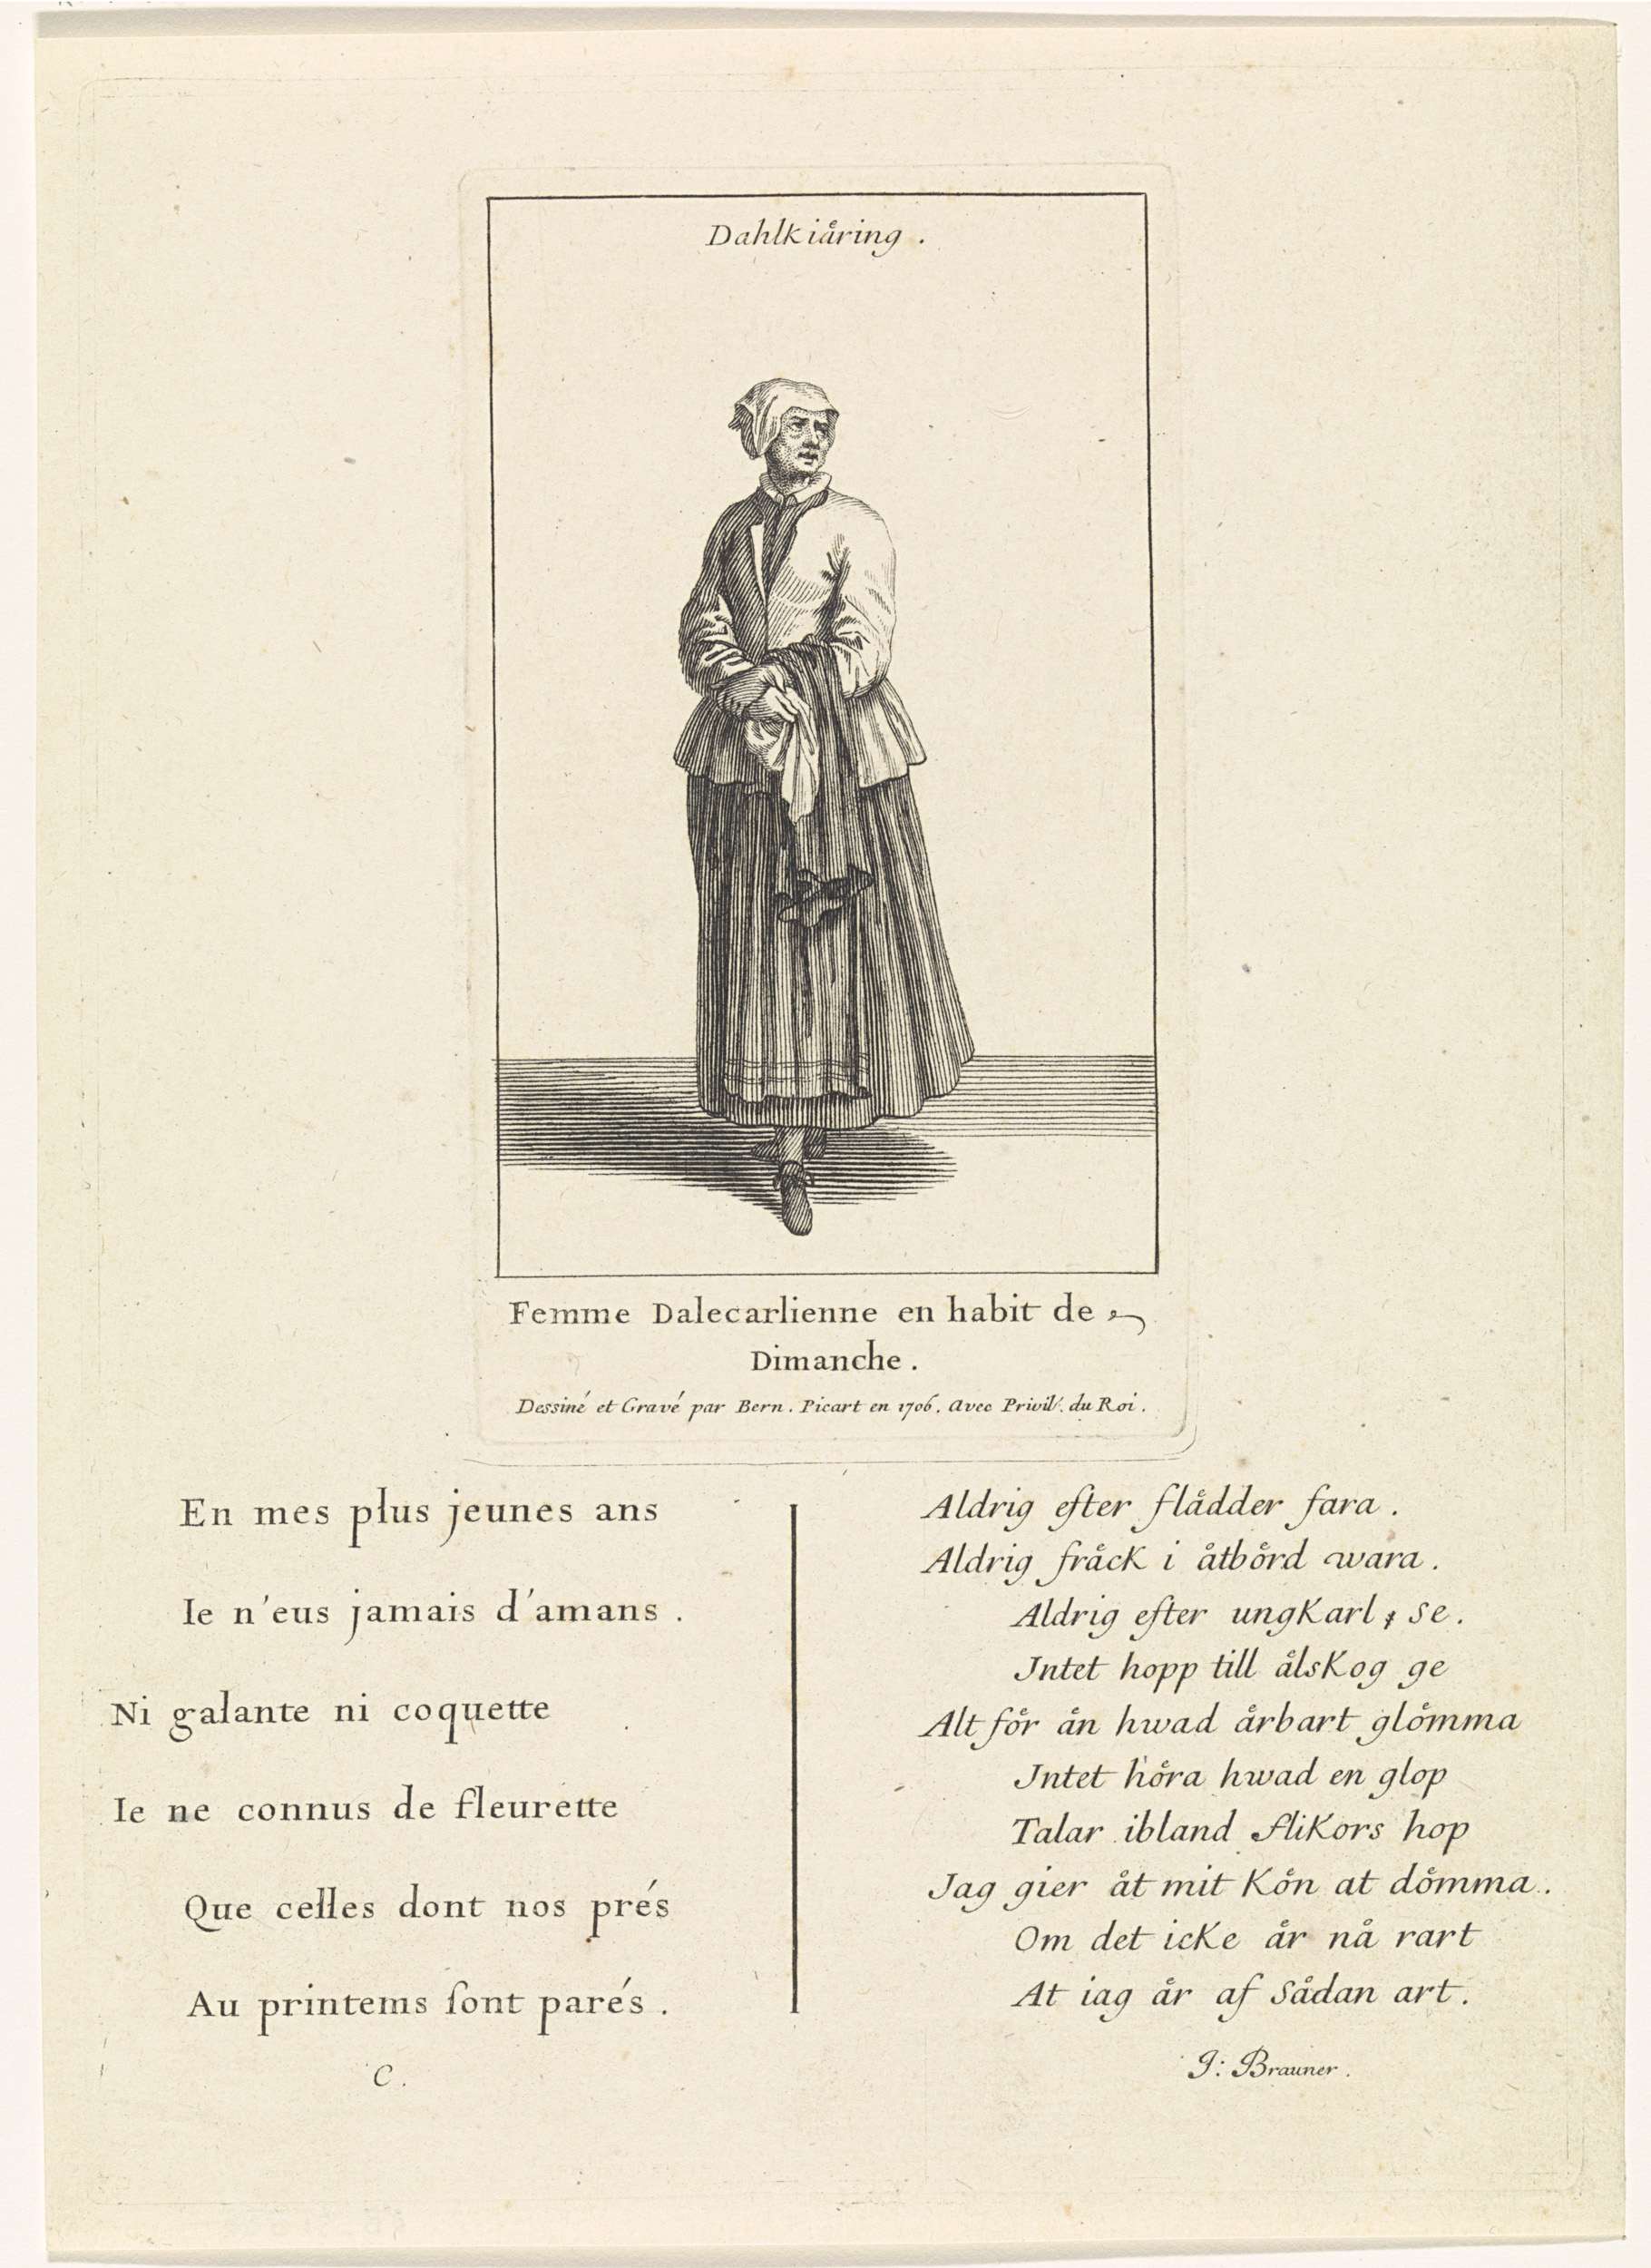 Dahlkiåring .
Femme Dalecarlienne en habit de
Dimanche .
Dessiné et Gravé par Bern. Picart en 1706. avec Privil. du Roi .
En mes plus jeunes ans
Ie n'eus jamais d'amans .
Ni galante ni coquette
Ie ne connus de fleurette
Que celles dont nos prés
Au printems ſont parés .
C .
Aldrig efter flådder fara .
Aldrig fråck i åtbörd wara .
Aldrig efter ungKarl se .
Jntet hopp till ålsKog ge
Alt för ån hwad årbart glömma
Jntet höra hwad en glop
Talar ibland fliKors hop
Jag gier åt mit Kön at dömma .
Om det icKe år nå rart
At iag år af Sådan art .
J: Brauner .